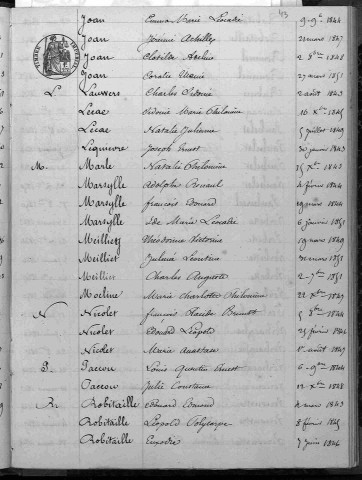 Joan Emma Marie Léocadie 9 9bre 1844
Joan Jeune Achille 22 mars 1847
Joan Clotilde 2 8bre 1848
Joan Coralie 27 mars 1851
L. Lauwers Charles Sidonie 2 août 1843
Lecae Sidonie Marie Philomène 16 Xbre 1843
Lecae Natalie Julienne 5 juillet 1849
Joseph Ernest 30 janvier 1843
M. Marle Natalie Philomène 15 Xbre 1843
Marsylle Adolphe 4 février 1844
Marsylle françois Edouard 19 mars 1844
Marsylle Ide Marie Léocadie 6 janvier 1851
Meilliez Victorine 19 mars 1849
Meilliez Julienne Léontine 31 mars 1851
Meillier Charles Auguste 2 7bre 1851
Macline Marie Charlotte Philomène 22 Xbre 1849
N Nicolet françois Claude 5 8bre 1844
Nicolet Edouard Léopold 25 février 1844
Nicolet Maria Anastase 1er août 1849
P. Paccou Louis Quentin Ernest 6 9bre 1844
Paccou Julie Constance 12 Xbre 1848
R. Robitaille Edouard Edmond 4 mars 1843
Robitaille Léopold Polycarpe 8 février 1845
Robitaille Euxodie 7 juin 1846